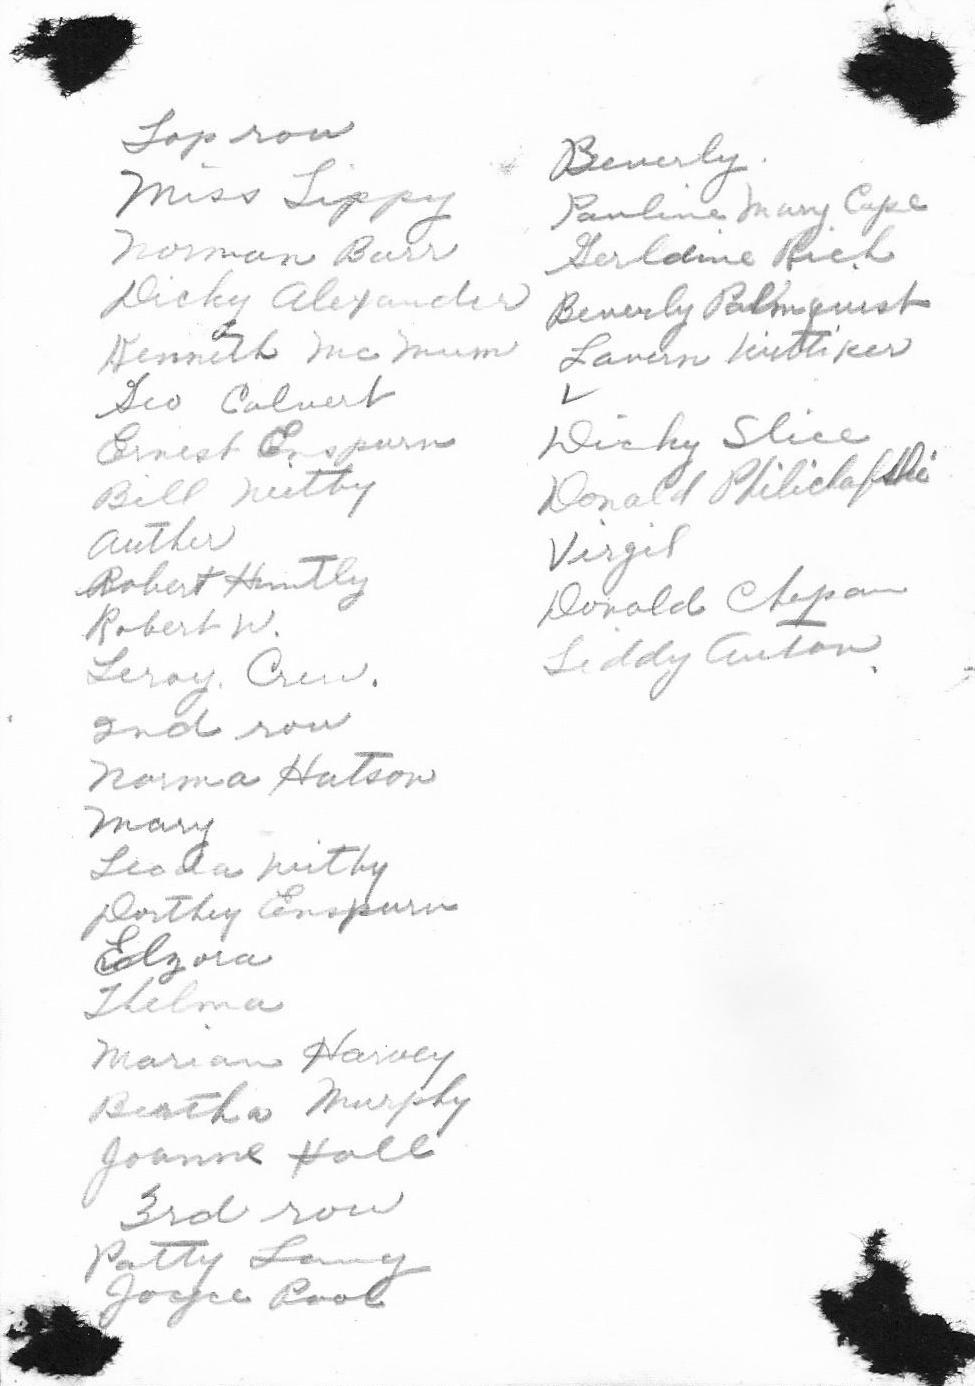 Top row
Miss Lippy
Norman Barr
Dicky Alexander
Kenneth Mc Mum
Geo Calvert
Ernest Enspurn
Bill Withy
Auther
Robert Huntly
Robert W.
Leroy. Crew.
2nd row
Norma Hatson
Mary
Leoda Withy
Dorthey Enspurn
Edzora
Thelma
Marian Harvey
Beatha Murphy
Joanne Hall
3rd row
Patty Lamy
Joyce Pool
Beverly.
Pauline Mary Cape
Gerldine Rich
Beverly Palmquist
Lavern
Dicky Slice
Donald
Virgil
Donald Chapan
Siddy Auton.